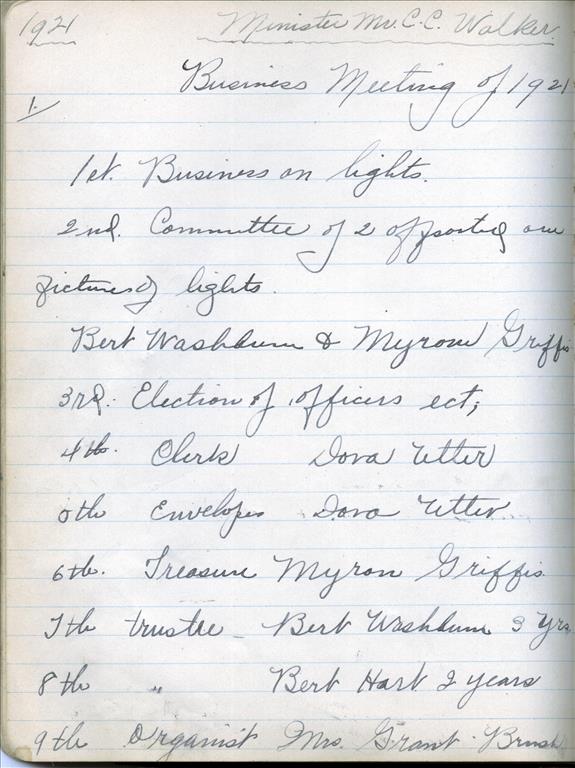 1921 Minister Mr. C.C. Walker.
Business Meeting of 1921
1.
1st. Business on lights.
2nd. Committee of 2 on
of lights.
Bert Washburn & Myron Griffis
3rd. Election of officers ect;
4th. Clerk Dora Utter
5th Envelopes Dora Utter
6th. Treasure Myron Griffis
7th trustee - Bert Washburn 3 Yrs.
8th " Bert Hart 2 years
9th Organist Mrs. Grant Brush